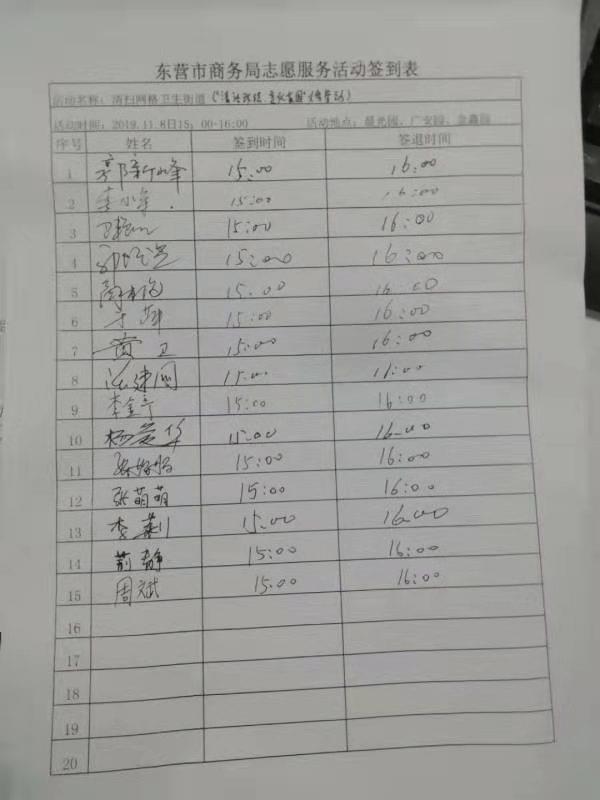 东营市商务局志愿服务活动签到表
活动名称：清扫网格卫生街道（"清洁环境、美化家园"
活动时间：2019.11.8日15：00-16:00 活动地点：晨光园、广安园、金鑫园
序号 姓名 签到时间 签退时间
1 郭新峰 15:00 16:00
2 李小军 15:00 16:00
3 15:00 16:00
4 15:00 16:00
5 15:00 16:00
6 于萍 15:00 16:00
7 黄卫 15:00 16:00
8 建国 15:00 16:00
9 李金亭 15:00 16:00
10 杨爱华 15:00 16:00
11 15:00 16:00
12 张萌萌 15:00 16:00
13 李莉 15:00 16:00
14 荆静 15:00 16:00
15 周斌 15:00 16:00
16
17
18
19
20